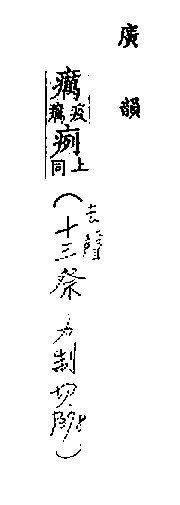 廣韻
癘疫癘㾐上同(去聲十三祭力制切)